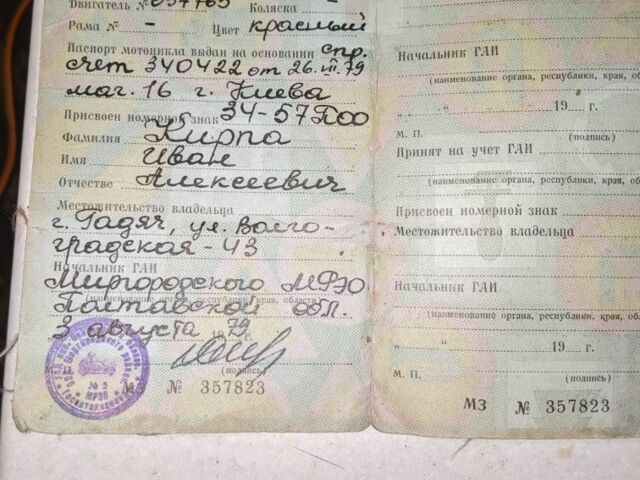 Двигатель №037765 Коляска -
Рама № - Цвет красный
Паспорт мотоцикла выдан на основании спр.
счет 340422 от 26.III.79
маг. 16 г. Киева
Присвоен номерной знак 34-57 ПОО
Фамилия Кирпа
Имя Иван
Отчество Алексеевич
Местожительство владельца
г. Гадяч, ул. Волго-
градская - 43
Начальник ГАИ
Миргородского МРЭО
(наименование органа, республики, края, области)
Полтавской обл.
3 августа 1979
М. П. (подпись)
№ 2
МРЭО
№ 357823
Начальник ГАИ
(наименование органа, республики, края, об
„ “ 19 г.
М. П. (подпись)
Принят на учет ГАИ
(наименование органа, республики, края, об
Присвоен номерной знак
Местожительство владельца
Начальник ГАИ
(наименование органа, республики, края, об
„ “ 19 г.
М. П. (подпись)
МЗ № 357823